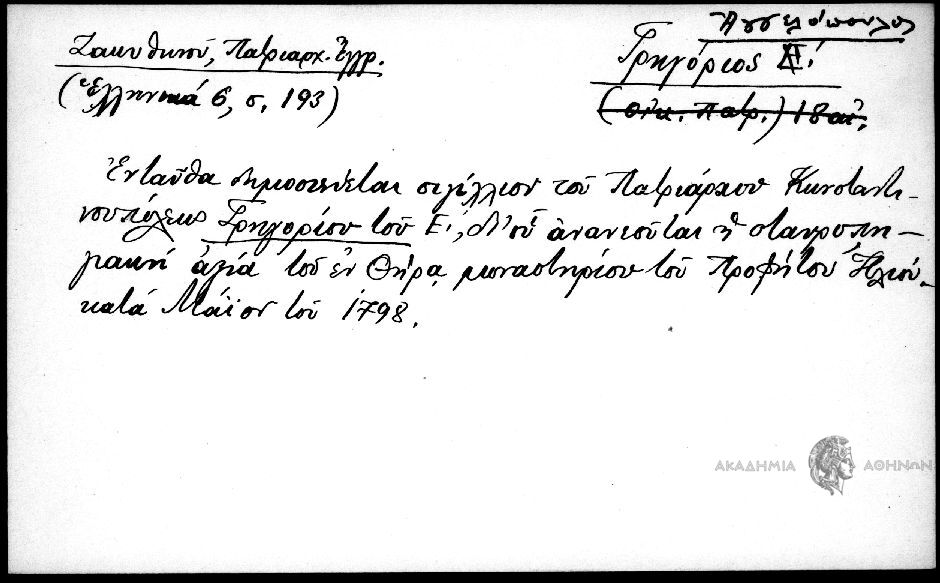 Ζακυθηνοῦ, Πατριαρχ. Ἔγγρ.
(Ἑλληνικά 6, σ. 193)
Ἀγγελόπουλος
Γρηγόριος Ε΄.
(οἰκ. πατρ.) 18 αἰ.
Ἐνταῦθα δημοσιεύεται σιγίλλιον τοῦ Πατριάρχου Κωνσταντι-
νουπόλεως Γρηγορίου τοῦ Ε΄, δι' οὗ ἀνανεοῦται ἡ σταυροπη-
γιακή ἀξία τοῦ ἐν Θήρᾳ μοναστηρίου τοῦ Προφήτου Ἠλιού.
κατά Μάϊον τοῦ 1798.
ΑΚΑΔΗΜΙΑ ΑΘΗΝΩΝ